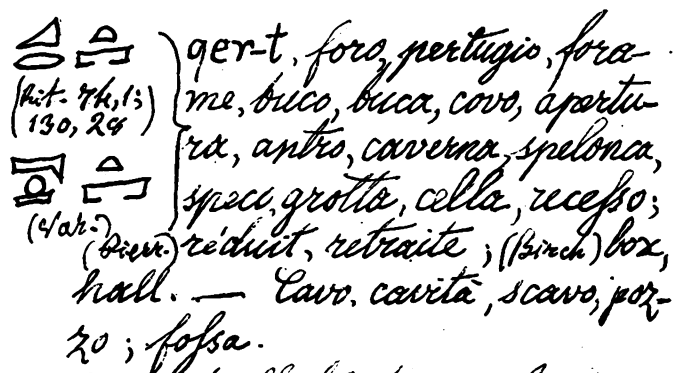 qer-t, foro, pertugio, fora-
(Rit. 74, 1; me, buco, buca, covo, apertu-
130, 28) ra, antro, caverna, spelonca,
speco, grotta, cella, recesso;
(Var.) (Pierr.) réduit, retraite; (Birch) box,
hall. — Cavo, cavità, scavo; poz-
zo; fossa.